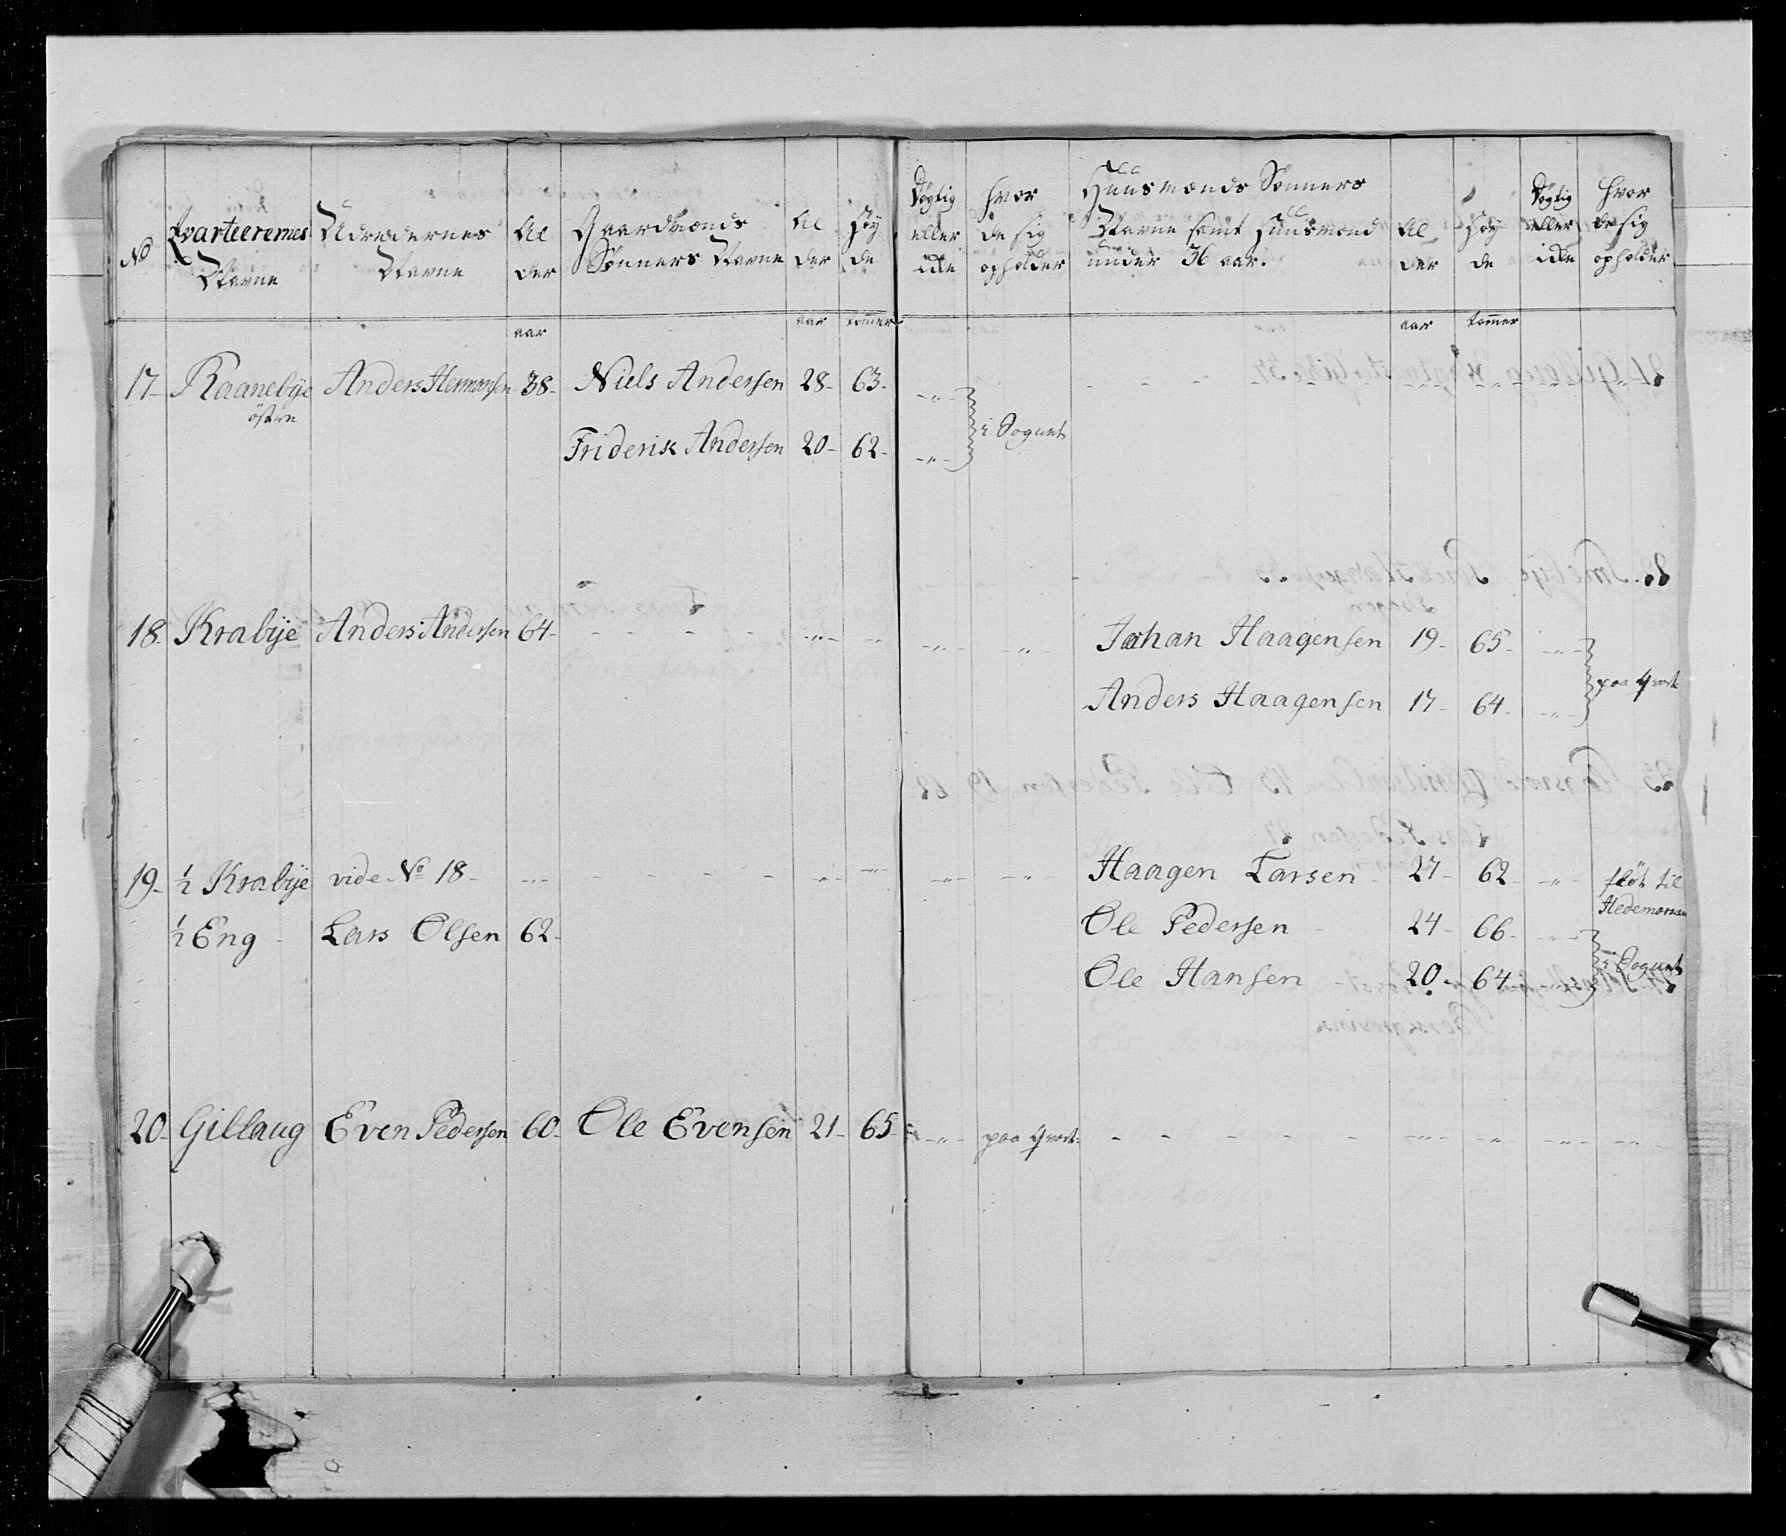 No
Qvarteerernes Navne
Udredernes Navne
Al der
Gaardmænds Sønners Navne
Al der
Høy de
Dygtig eller icke
hvor de sig opholder
Huusmænds Sønners Navne samt Huusmænd under 36 aar.
Al der
Høy de
Dygtig eller icke
hvor de sig opholder
aar aar tommer aar tommer
17 Raanebye Anders Hermansen 38 Niels Andersen 28 63 - " -
östre
Friderik Andersen 20 62 - " - i Sognet
18 Krabye Anders Andersen 64 - - - - - " - - - " - " - Johan Haagensen 19 65 - " -
Anders Haagensen 17 64 - " - paa Qvart
19 ½ Krabye vide No 18 - - - - - - - - " - - - " - Haagen Larsen 27 62 - " - fløt til
Hedemarken
½ Eng - Lars Olsen 62 Ole Pedersen 24 66 - " -
Ole Hansen 20 64 - " - i Sognet
20 Gillaug Even Pedersen 60 Ole Evensen 21 65 - " - paa Qvart: - - - - - - " - - " - - " - - " -